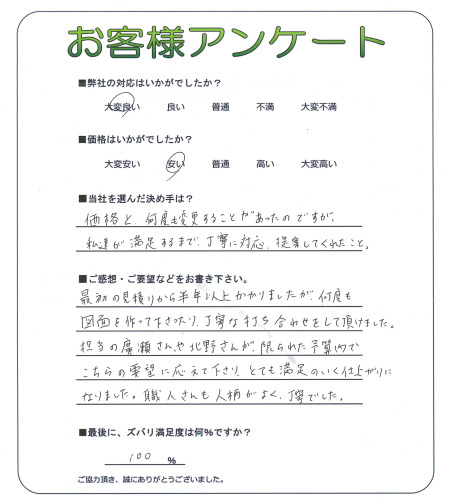 お客様アンケート
■弊社の対応はいかがでしたか？
大変良い 良い 普通 不満 大変不満
■価格はいかがでしたか？
大変安い 安い 普通 高い 大変高い
■当社を選んだ決め手は？
価格と、何度も変更することがあったのですが、
私達が満足するまで、丁寧に対応、提案してくれたこと。
■ご感想・ご要望などをお書き下さい。
最初の見積りから半年以上かかりましたが、何度も
図面を作って下さったり、丁寧な打ち合わせをして頂けました。
担当の廣瀬さんや北野さんが、限られた予算内で
こちらの要望に応えて下さり、とても満足のいく仕上がりに
なりました。職人さんも人柄がよく、丁寧でした。
■最後に、ズバリ満足度は何%ですか？
100 %
ご協力頂き、誠にありがとうございました。